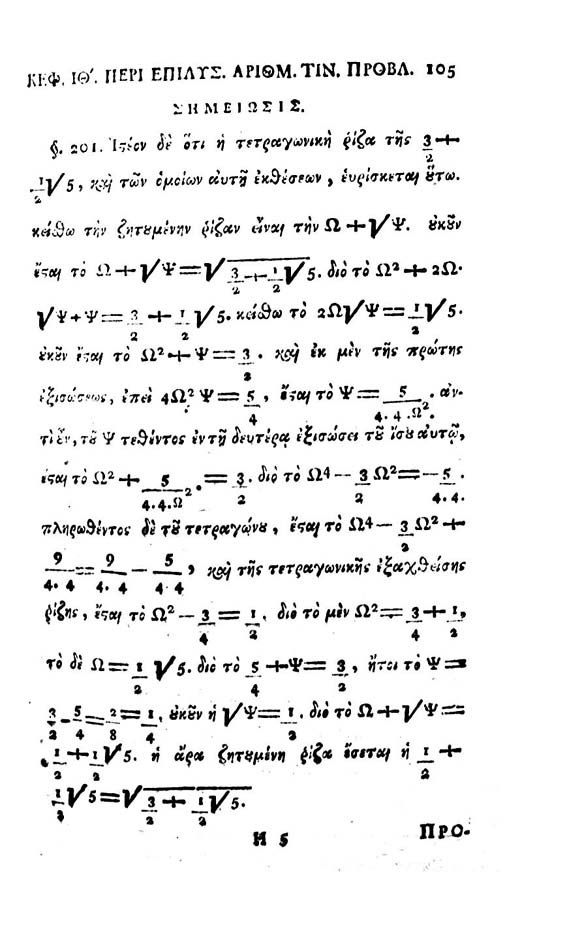 ΚΕΦ. ΙΘ΄. ΠΕΡΙ ΕΠΙΛΥΣ. ΑΡΙΘΜ. ΤΙΝ. ΠΡΟΒΛ. 105
ΣΗΜΕΙΩΣΙΣ.
§. 201. Ἰστέον δὲ ὅτι ἡ τετραγωνικὴ ῥίζα τῆς 3/2 +
1/2 √5, καὶ τῶν ὁμοίων αυτῇ ἐκθέσεων, ἑυρίσκεται ὅτω.
κείθω τὴν ζητουμένην ῥίζαν εἶναι τὴν Ω + √Ψ. ἐκῦν
ἔσαι τὸ Ω + √Ψ = √ 3/2 + 1/2 √5. διὸ τὸ Ω² + 2Ω.
√Ψ + Ψ = 3/2 + 1/2 √5. κείθω τὸ 2Ω√Ψ = 1/2 √5.
ἐκῦν ἔσαι τὸ Ω² + Ψ = 3/2. καὶ ἐκ μὲν τῆς πρώτης
ἐξισώσεως, ἐπεὶ 4Ω² Ψ = 5/4, ἔσαι τὸ Ψ = 5/4.4.Ω². ἀν-
τὶ ἐν, τῦ Ψ τεθέντος ἐν τῇ δευτέρᾳ ἐξισώσει τῦ ἴσυ αυτῷ,
ἔσαι τὸ Ω² + 5/4.4.Ω². = 3/2. διὸ τὸ Ω4 — 3/2 Ω² = — 5/4.4.
πληρωθέντος δὲ τῦ τετραγώνυ, ἔσαι τὸ Ω4 — 3/2 Ω² +
9/4.4 = 9/4.4 — 5/4.4, καὶ τῆς τετραγωνικῆς ἐξαχθείσης
ῥίζης, ἔσαι τὸ Ω² — 3/4 = 1/2. διὸ τὸ μὲν Ω² = 3/4 + 1/2,
τὸ δὲ Ω = 1/2 √5. διὸ τὸ 5/4 + Ψ = 3/2, ἤτοι τὸ Ψ =
3/2 - 5/4 = 2/8 = 1/4, ἐκῦν ἡ √Ψ = 1/2. διὸ τὸ Ω + √Ψ =
1/2 + 1/2 √5. ἡ ἄρα ζητυμένη ῥίζα ἔσεται ἡ 1/2 +
1/2 √5 = √ 3/2 + 1/2 √5.
Η 5
ΠΡΟ-